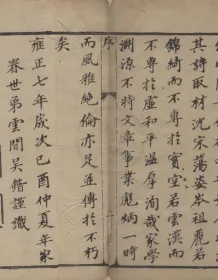 其詩取材沈宋蕩姿岑祖麗若
錦綺而不專於實空若雲漢而
不專於虛和平溫厚洵哉家學
淵源不特文章事業彪炳一時
序
而風雅絕倫亦足並傳於不朽
矣
雍正七年歲次己酉仲夏年家
眷世弟雲間吳鍇謹識